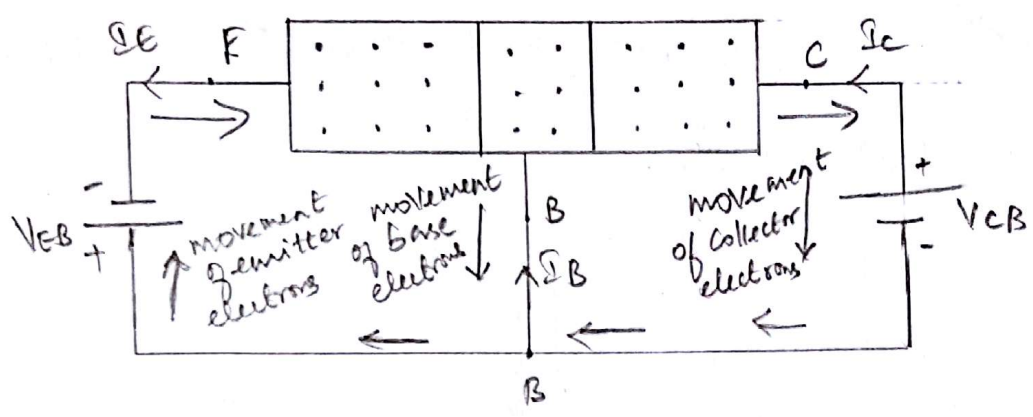 IE
E
C
IC
-
VEB
+
movement
of emitter
electrons
movement
of base
electrons
B
IB
movement
of collector
electrons
+
VCB
-
B